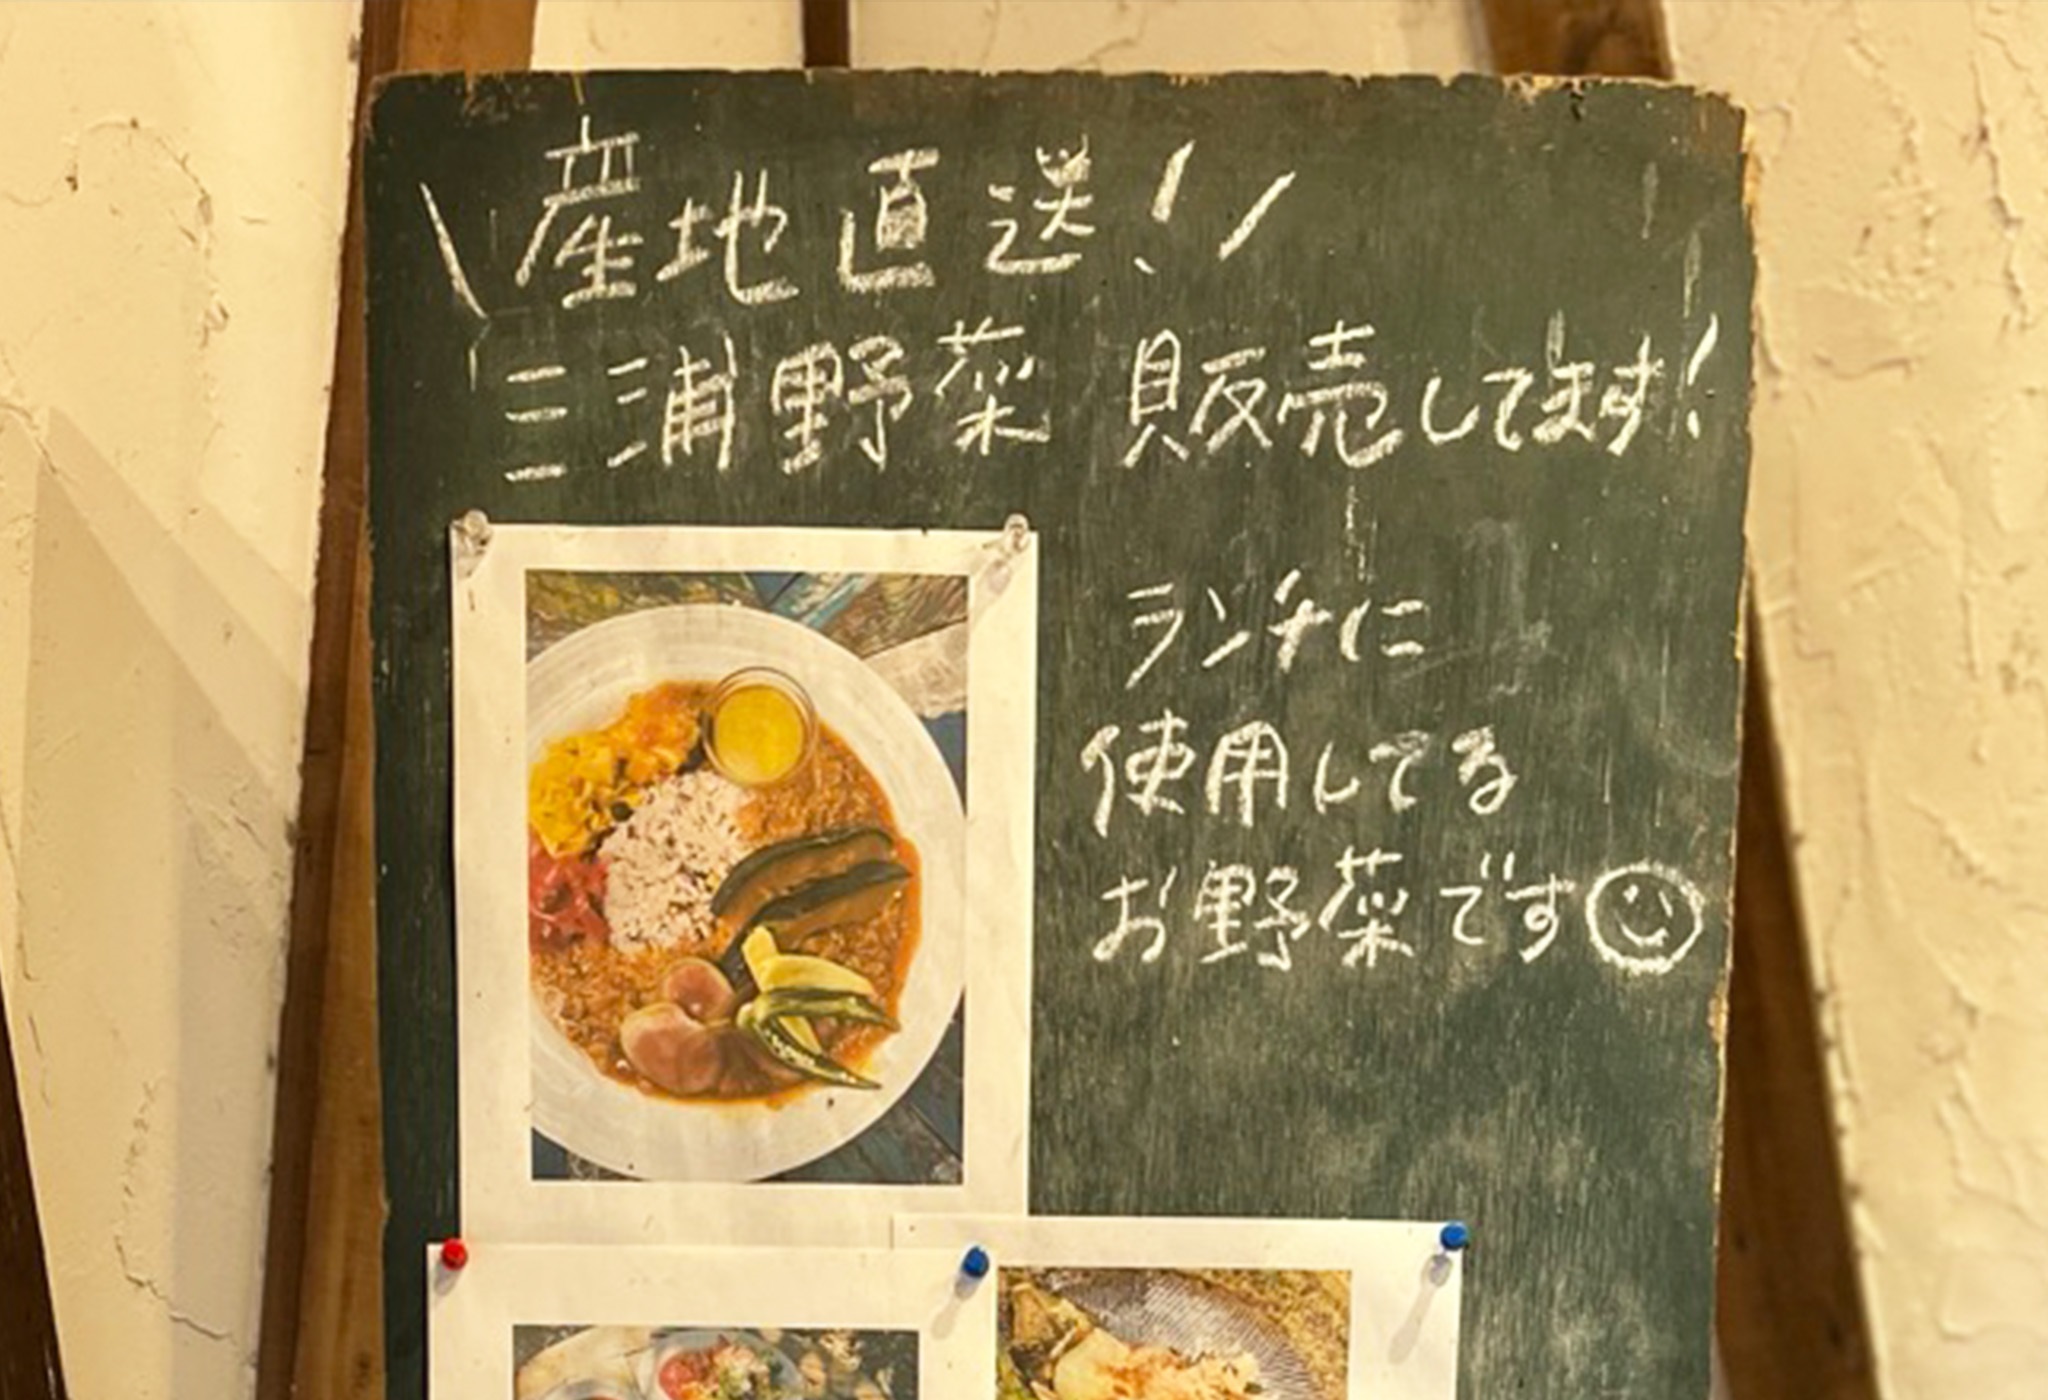 \産地直送!/
三浦野菜 販売してます!
ランチに
使用してる
お野菜です